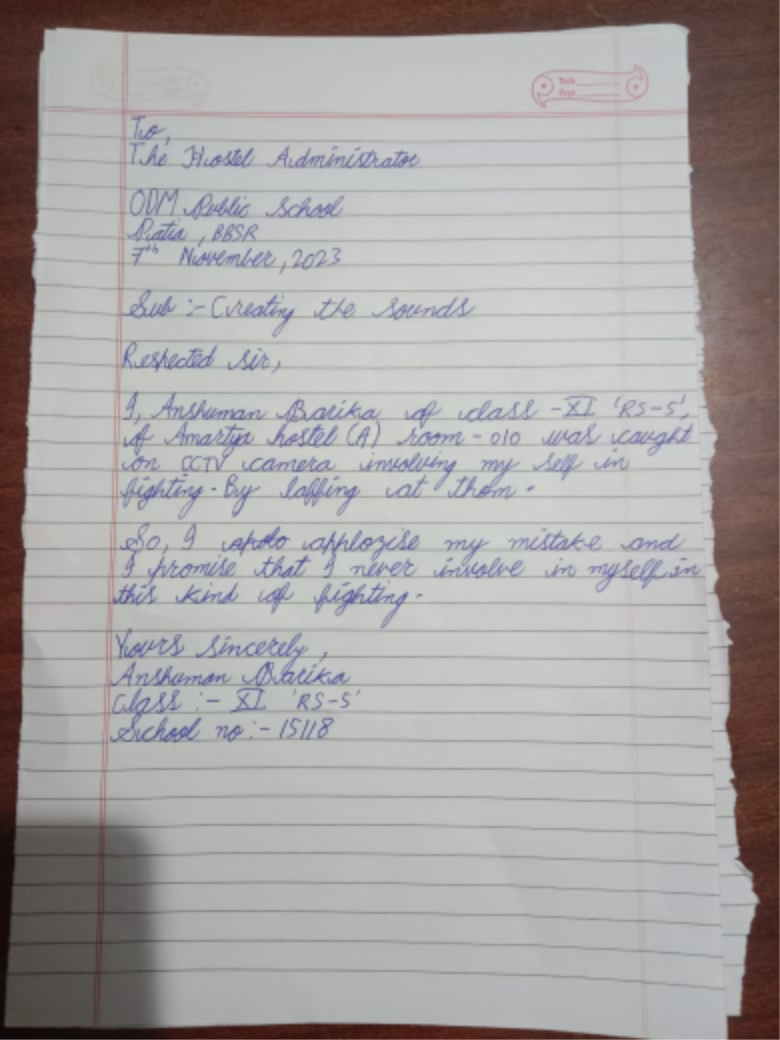 Date
Page
To,
The Hostel Administrator
ODM Public School
Patia, BBSR
7th November, 2023
Sub :- Creating the sounds
Respected sir,
I, Anshuman Barika of class - XI 'RS-5',
of Amartya hostel (A) room - 010 was caught
on CCTV camera involving my self in
fighting. By laffing at them.
So, I apolo applogise my mistake and
I promise that I never involve in myself in
this kind of fighting.
Yours sincerely,
Anshuman Barika
Class :- XI 'RS-5'
School no :- 15118